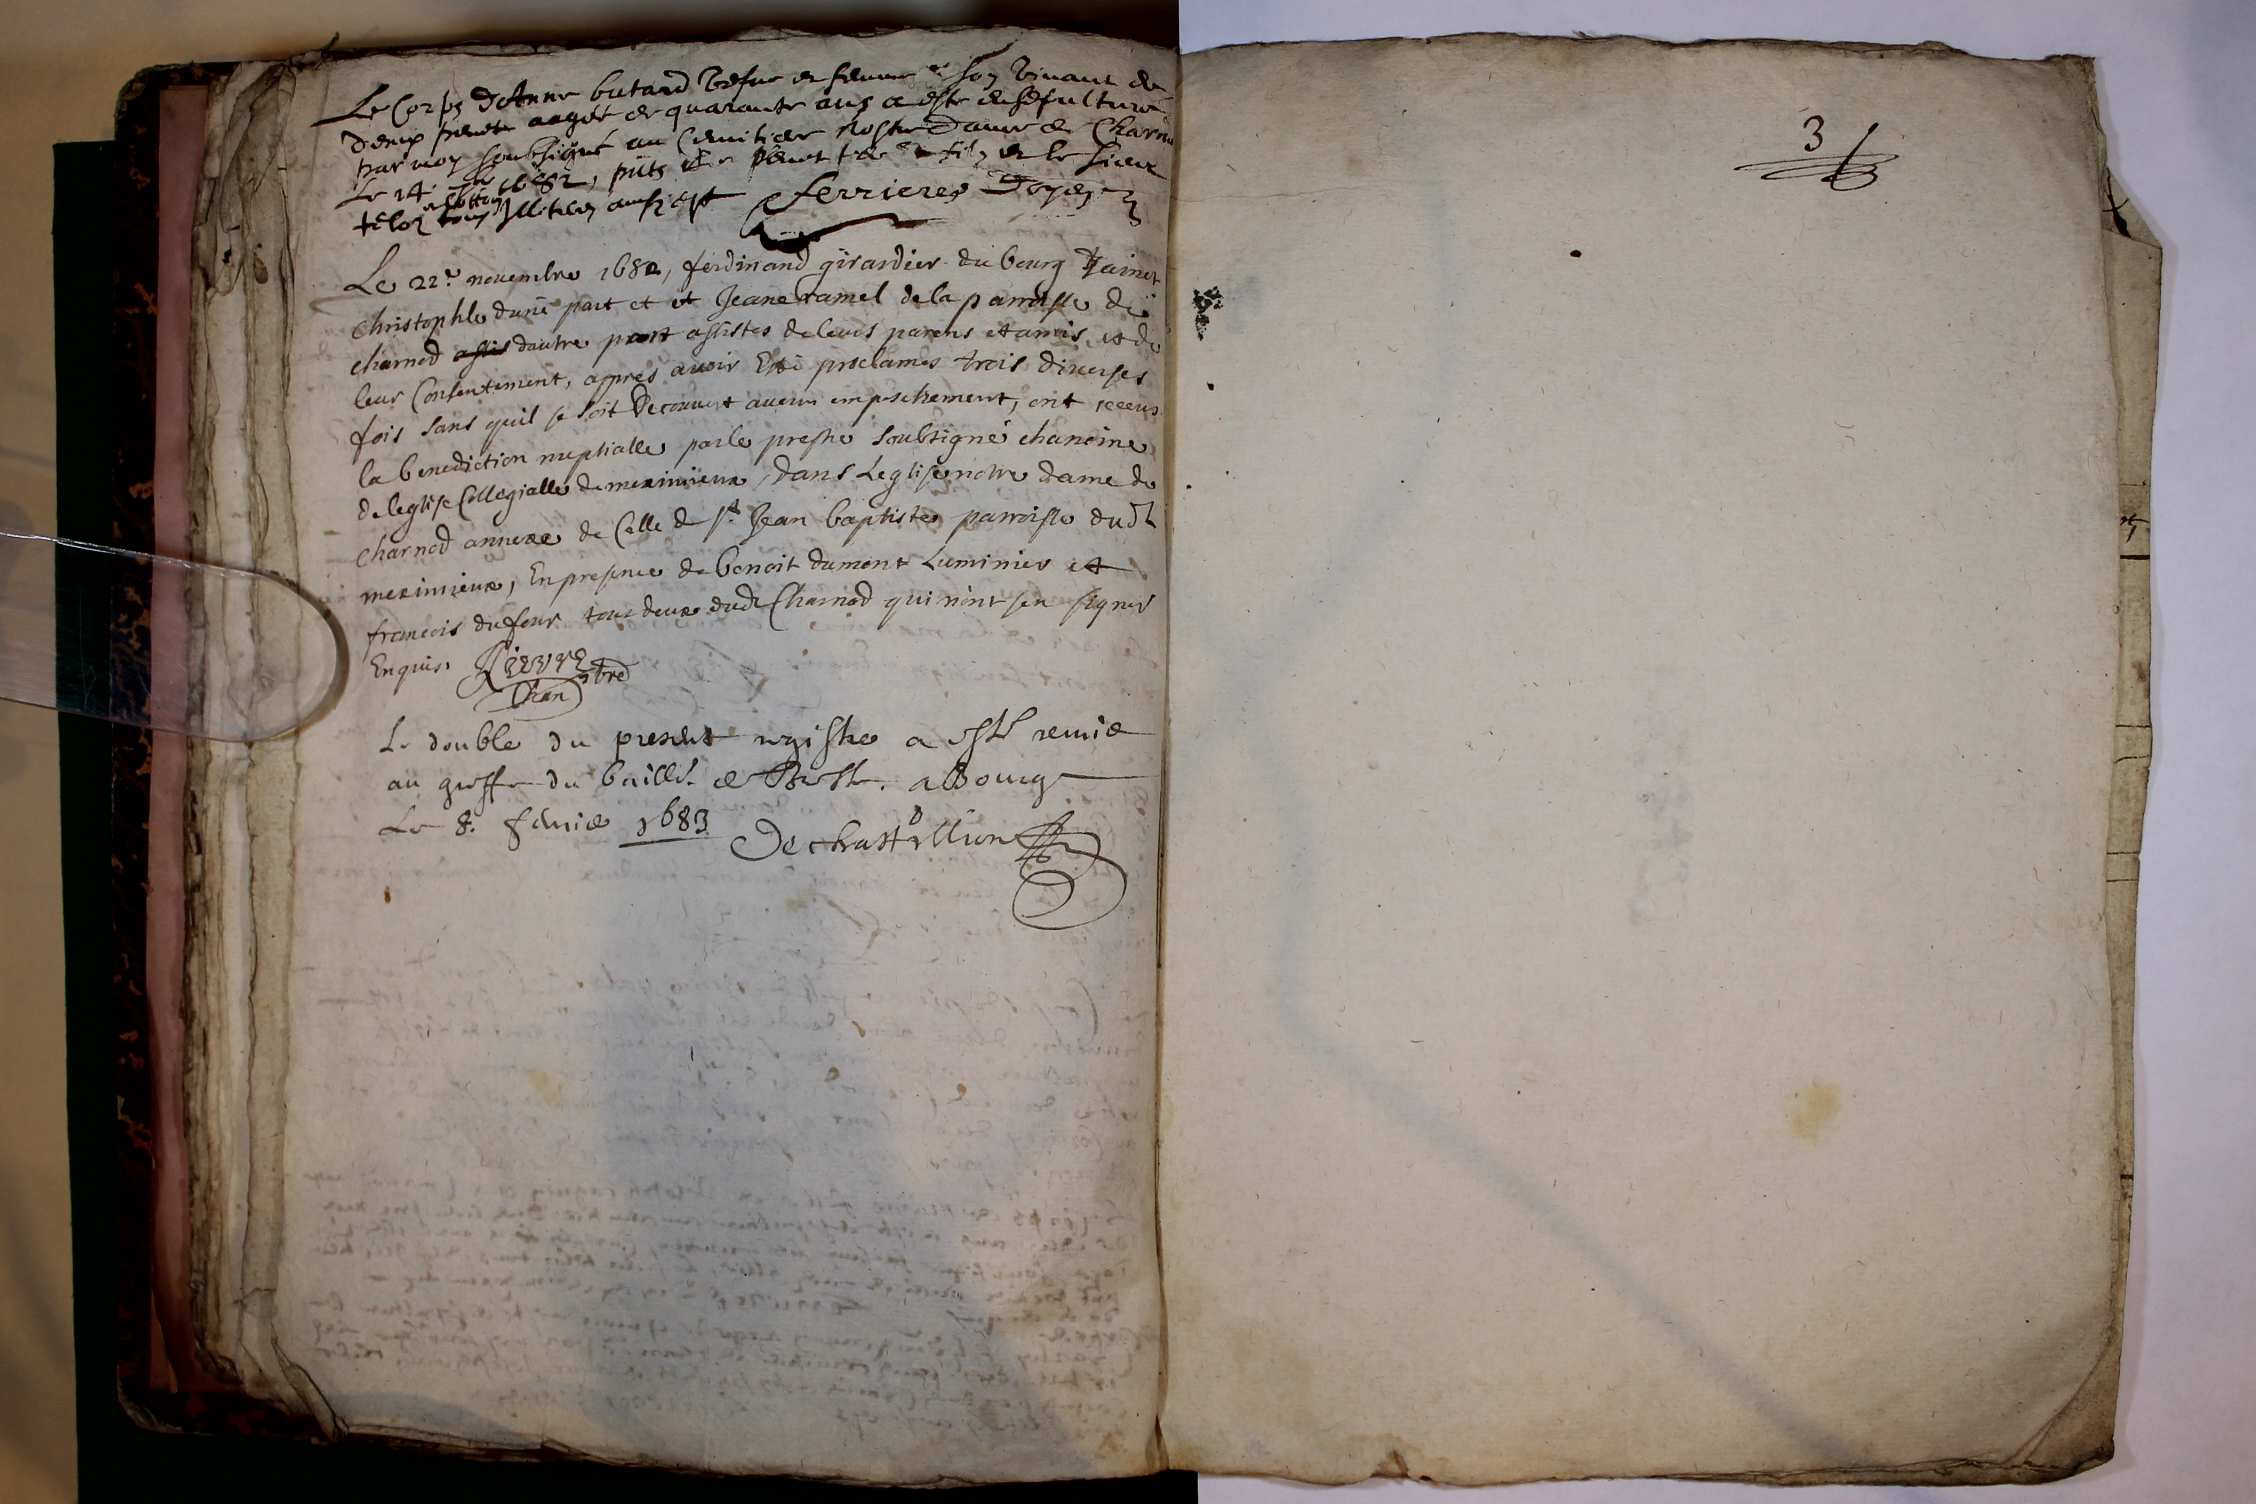 Le Corps d'Anne butard vesue et femme en son vivant de
aagée de quarante ans a esté
par moy soubsigné au Cemitiere Nostre Dame de Charno
Le 24 1682, et le sieur
Ferrieres Doyen
Le 22e novembre 1682, ferdinand girardier du bourg saint
christophle dune part et et Jeane ramel de la parroisse de
charnod assis dautre part assistes de leurs parens et amis, et de
leur Consentement, appres avoir Esté proclames trois diverses
fois sans quil se soit Decouvert aucun empeschement, ont receus
la benediction nuptialle par le prestre soubsigné chanoine
de leglise Collegialle de meximieux, dans Leglise notre dame de
charnod annexe de Celle de st Jean baptiste parroisse dudt
meximieux, En presence de benoit dumont Luminier et
francois dufour tous deux dudt Charnod qui n'ont sceu signer
Enquis.
Chan
Le double du present registre a esté remis
au greffe du baille. de Bresse. a Bourg
Le 8. fevrier 1683
De chastillion
3